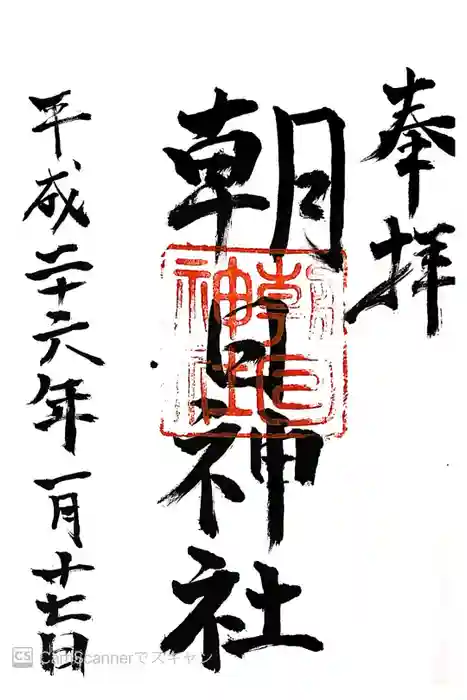 奉拝
朝日神社
朝日神社
平成二十六年一月廿七日
CS CamScannerでスキャン